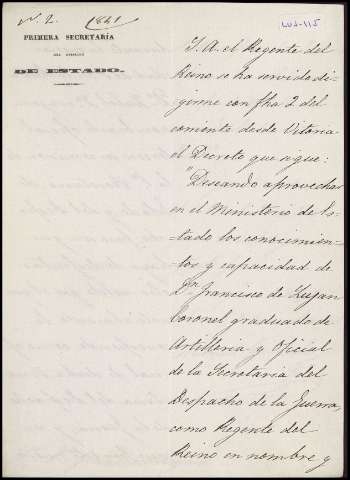 Nº 2. 1841
LUJ-115
PRIMERA SECRETARÍA
DEL DESPACHO
DE ESTADO.
S. A. el Regente del
Reino se ha servido di-
girme con fha 2 del
corriente desde Vitoria
el Decreto que sigue:
"Deseando aprovechar
en el Ministerio de Es-
-tado los conocimien-
-tos y capacidad de
Dn. Francisco de Lujan
Coronel graduado de
Artilleria y Oficial
de la Secretaria del
Despacho de la Guerra,
como Regente del
Reino en nombre y